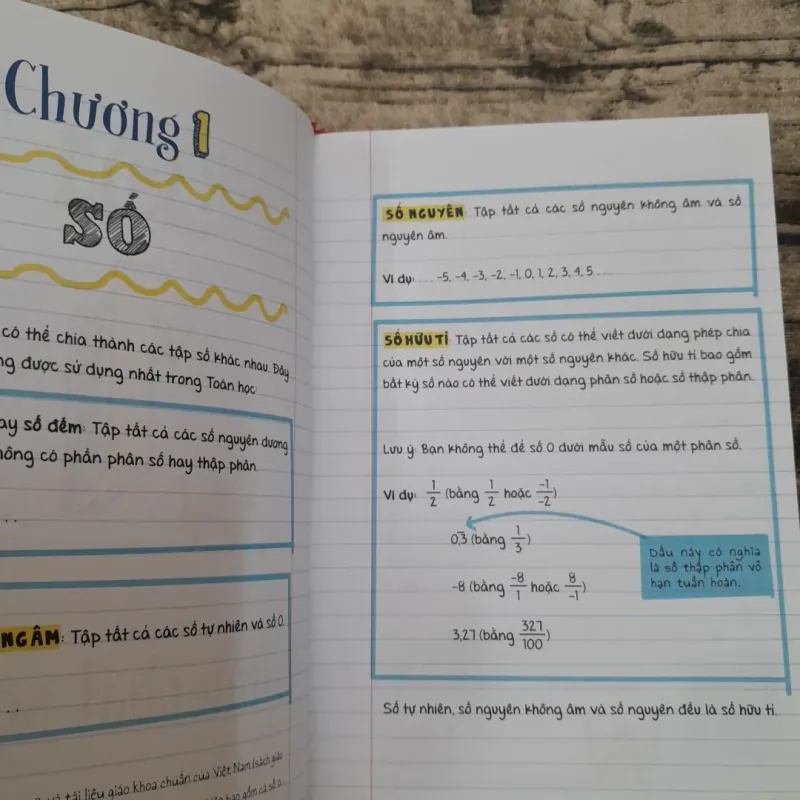 Chương 1
SỐ
có thể chia thành các tập số khác nhau. Đây
được sử dụng nhất trong Toán học:
số đếm: Tập tất cả các số nguyên dương
có phần phân số hay thập phân.
. .
ÂM: Tập tất cả các số tự nhiên và số 0.
. .
và tài liệu giáo khoa chuẩn của Việt Nam (sách giáo
bao gồm cả số 0.
SỐ NGUYÊN: Tập tất cả các số nguyên không âm và số
nguyên âm.
Ví dụ: . . . -5, -4, -3, -2, -1, 0, 1, 2, 3, 4, 5 . . .
SỐ HỮU TỈ: Tập tất cả các số có thể viết dưới dạng phép chia
của một số nguyên với một số nguyên khác. Số hữu tỉ bao gồm
bất kỳ số nào có thể viết dưới dạng phân số hoặc số thập phân.
Lưu ý: Bạn không thể để số 0 dưới mẫu số của một phân số.
Ví dụ: 1/2 (bằng 1/2 hoặc -1/-2)
0,3̅ (bằng 1/3)
Dấu này có nghĩa
là số thập phân vô
hạn tuần hoàn.
-8 (bằng -8/1 hoặc 8/-1)
3,27 (bằng 327/100)
Số tự nhiên, số nguyên không âm và số nguyên đều là số hữu tỉ.